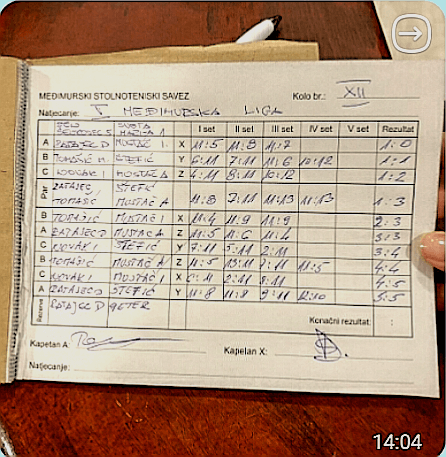 MEĐIMURSKI STOLNOTENISKI SAVEZ Kolo br.: XII
Natjecanje: I MEĐIMURSKA LIGA
I set II set III set IV set V set Rezultat
A RATAJEC D MUSTAČ I. X 11:5 11:8 11:7 1:0
B TOMAŠIĆ M. ŠTEFIĆ Y 6:11 7:11 11:6 10:12 1:1
C NOVAK I MUSTAČ A Z 4:11 8:11 10:12 1:2
Par RATAJEC ŠTEFIĆ
TOMAŠIĆ MUSTAČ A 11:8 7:11 11:13 11:13 1:3
B TOMAŠIĆ MUSTAČ I X 11:4 11:9 11:9 2:3
A RATAJEC D MUSTAČ A Z 11:5 11:6 11:4 3:3
C NOVAK I ŠTEFIĆ Y 7:11 5:11 2:11 3:4
B TOMAŠIĆ MUSTAČ A Z 11:5 13:11 11:5 4:4
C NOVAK I MUSTAČ I X 2:11 8:11 4:5
A RATAJEC D ŠTEFIĆ Y 11:8 11:8 9:11 12:10 5:5
Rezerva RATAJEC D
Konačni rezultat: :
Kapetan A: Kapetan X:
Natjecanje:
14:04